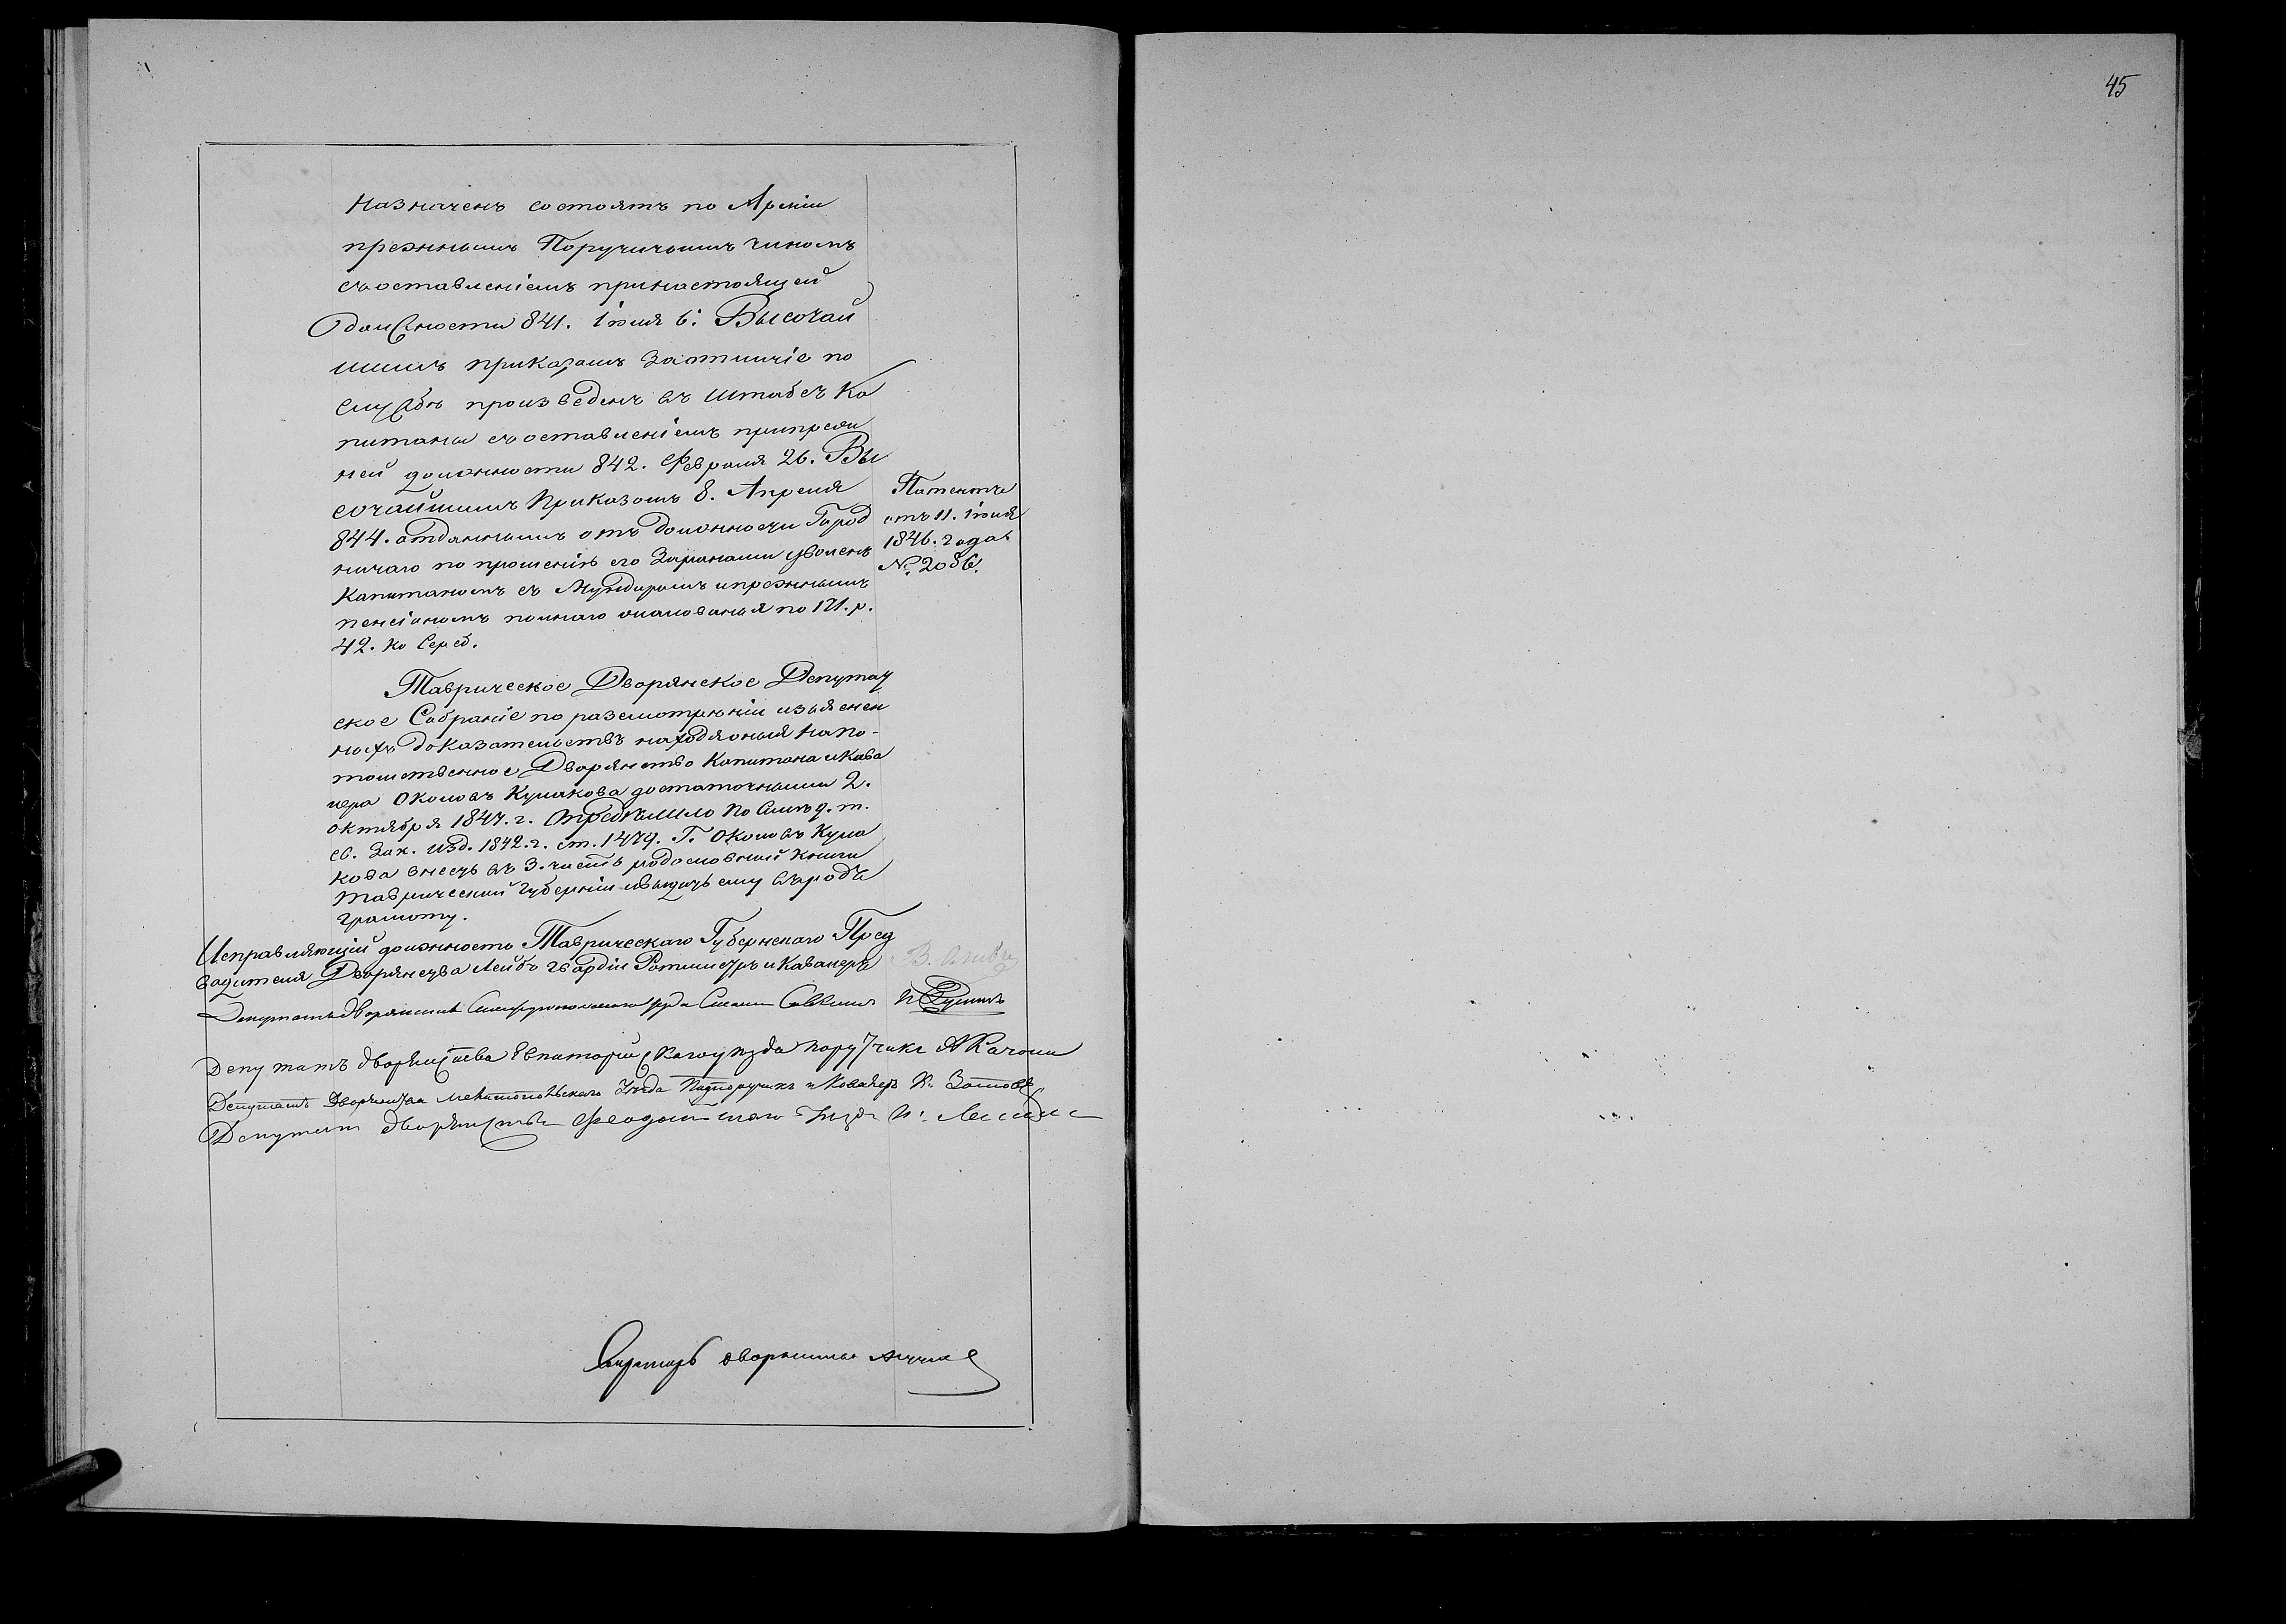 45
назначенъ состоять по Арміи
прежнимъ Поручичьимъ чиномъ
съоставленіемъ принастоящей
должности 841. Іюля 6. Высочай
шимъ приказомъ Заотличіе по
Службѣ произведенъ въ Штабсъ Ка
питаны съоставленіемъ припреж
ней должности 842. Февраля 26. Вы
сочайшимъ Приказомъ 8. Апреля
844. отданнымъ отъ должности Город
ничаго по прошенію его Заранами уволенъ
Капитаномъ съ Мундиромъ ипрежнимъ
пенсіономъ полнаго жалованья по 171. р.
42. ко Сереб.
Патентъ
отъ 11. Іюля
1846. года
№ 2086.
Таврическое Дворянское Депутат
ское Собраніе по разсмотрѣніи изъяснен
ныхъ доказательствъ находя оныя напо-
томственное Дворянство Капитана иКава
лера Околовъ Кулакова достаточными 2.
октября 1847. г. Опредѣлило по Силѣ 9. т.
св. Зак. изд. 1842. г. ст. 1479. Г. Околовъ Кула
кова внесть въ 3. часть родословной книги
Таврической Губерніи ивыдать ему въродъ
грамоту.
Исправляющій должность Таврическаго Губернскаго Пред
водителя Дворянства Лейбъ гвардіи Ротмистръ иКавалеръ В.
Депутатъ дворянства Симферопольскаго уѣзда
Депутатъ дворянства Евпаторійскаго уѣзда поручикъ А Качони
Депутатъ Дворянства Мелитопольскаго Уѣзда Подпоручикъ и Кавалеръ К. Зотовъ
Депутатъ дворянства Феодосійскаго Уѣзда
Секретарь дворянства